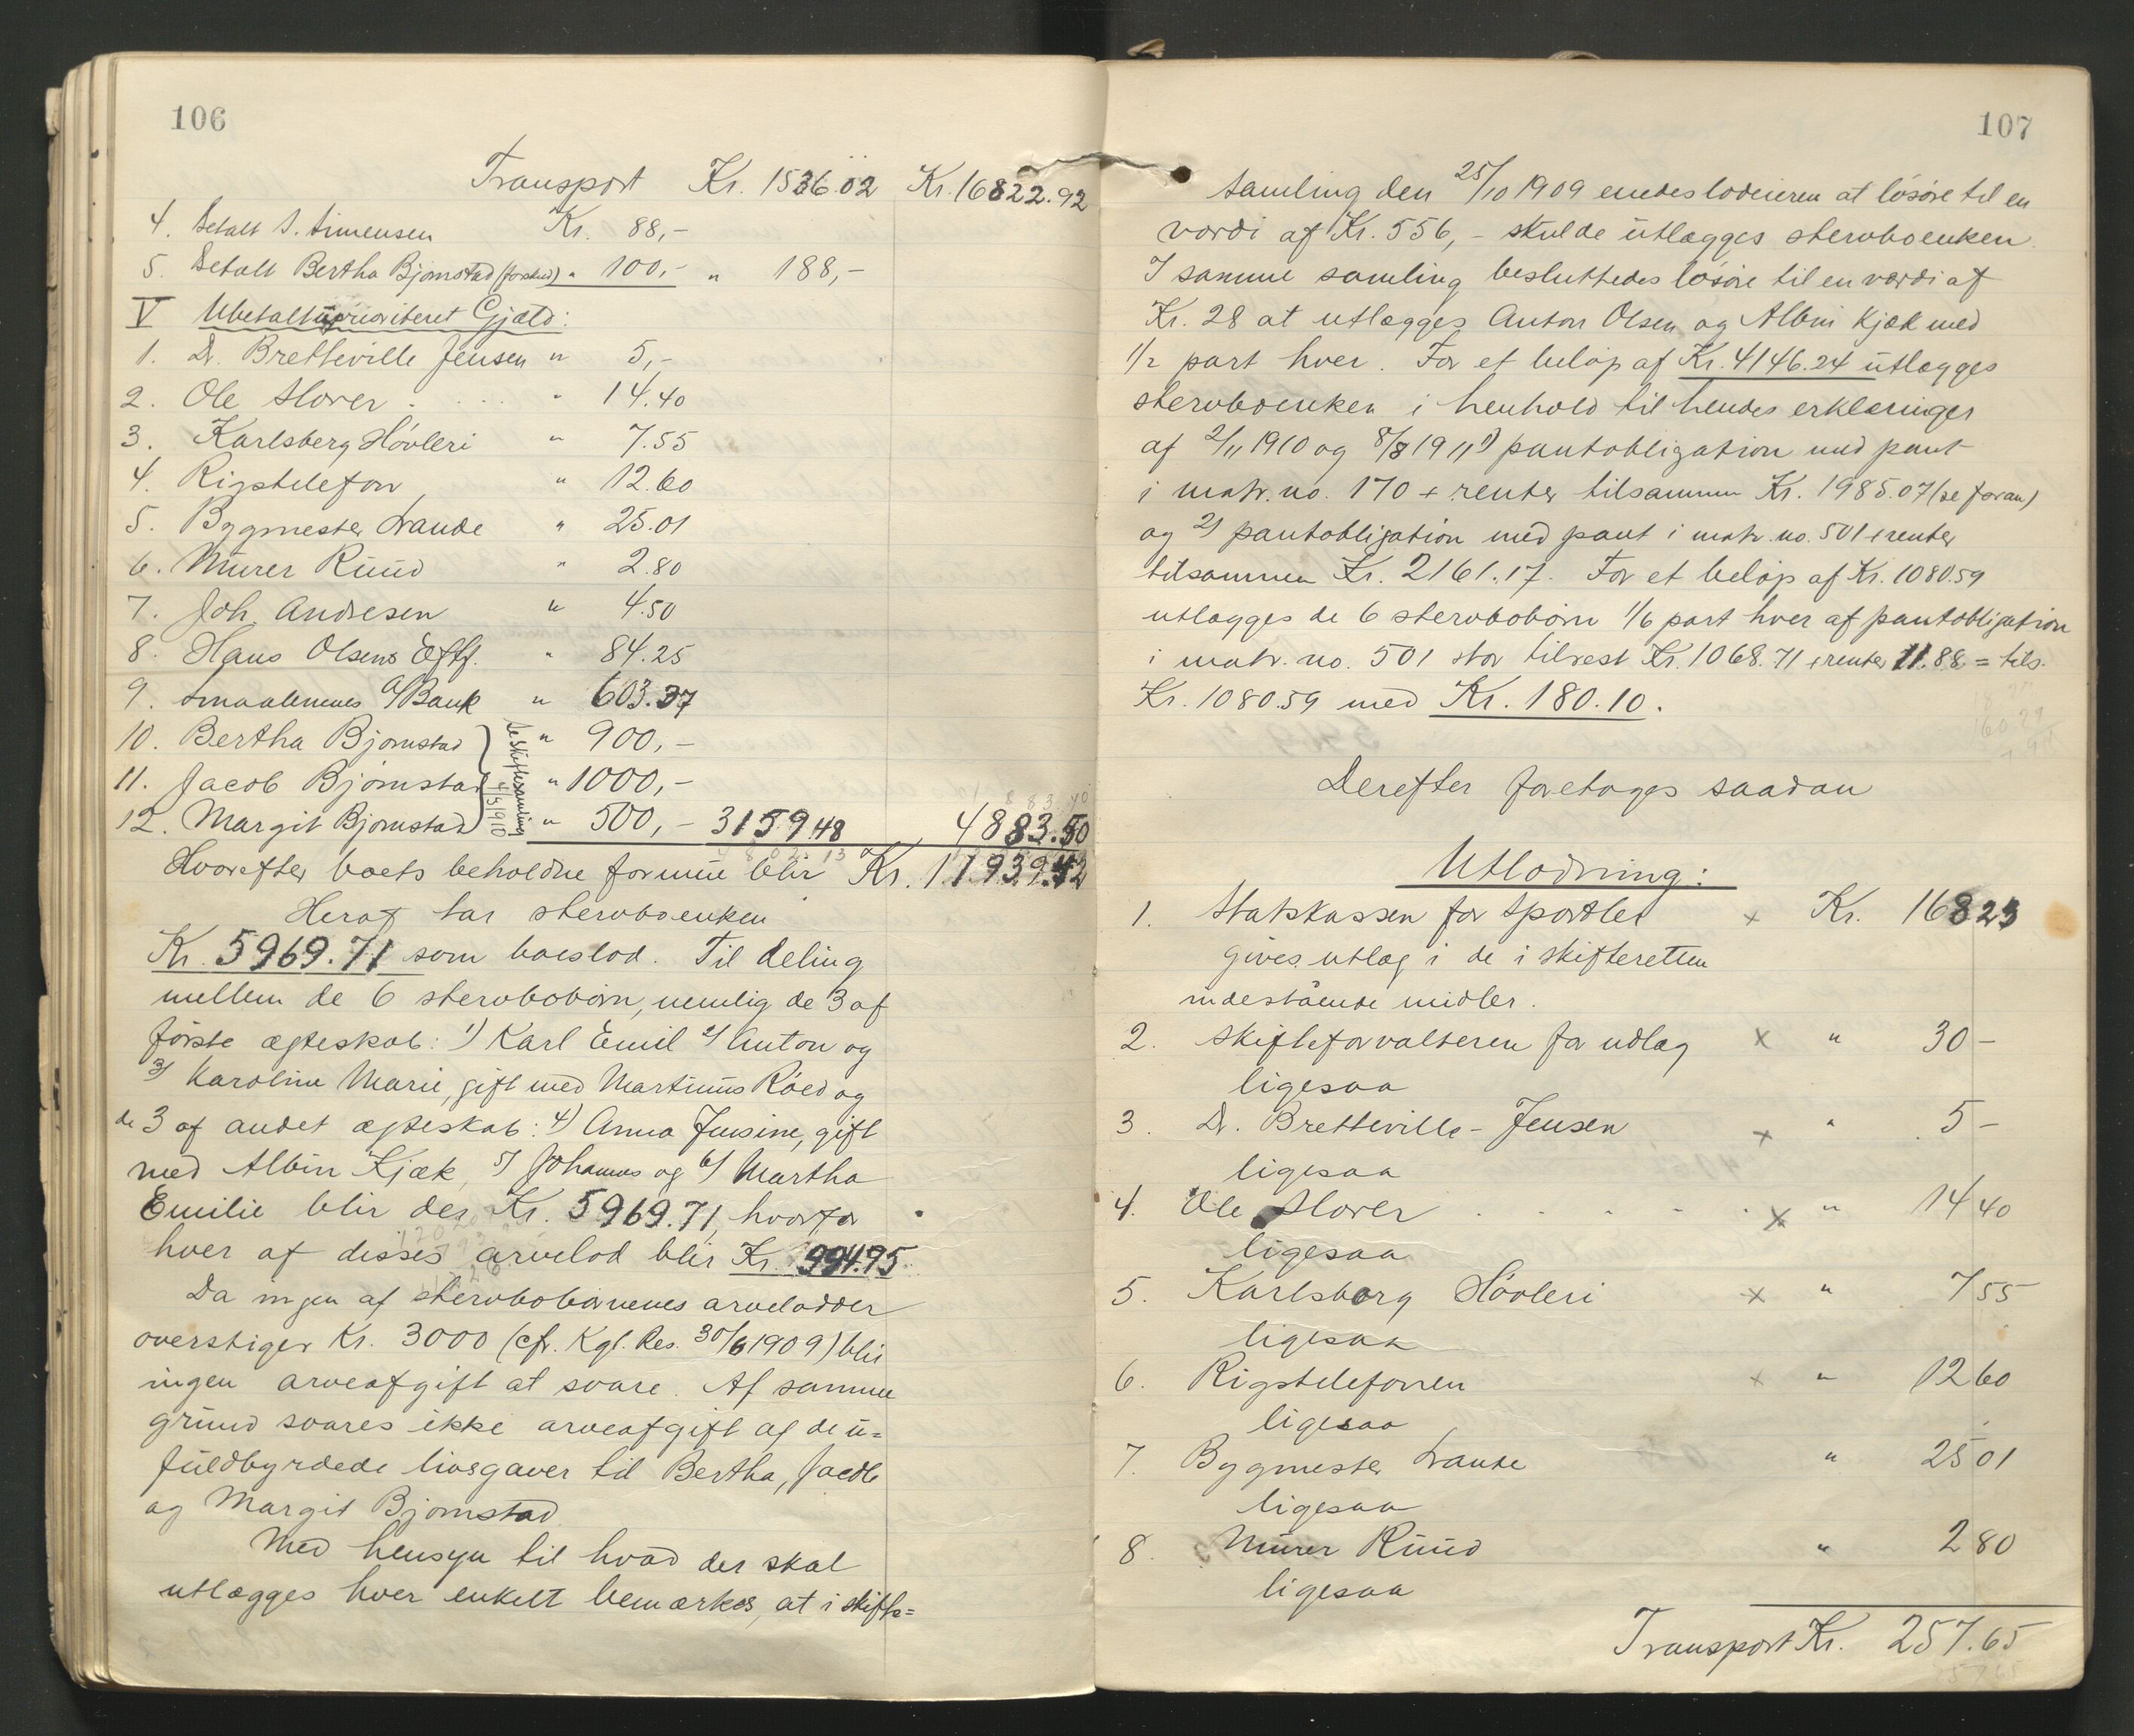 106
Transport Kr. 1536.02 Kr. 16822.92
4. Betalt S. Simensen Kr. 88,-
5. Betalt Bertha Bjørnstad (forskud) " 100,- " 188,-
V Ubetalt uprioriteret Gjæld:
1. Dr. Bretteville Jensen " 5,-
2. Ole Slorer . . . . " 14.40
3. Karlsberg Høvleri " 7.55
4. Rigstelefon " 12.60
5. Bygmester Lande " 25.01
6. Murer Ruud " 2.80
7. Joh. Andresen " 4.50
8. Hans Olsens Eftf. " 84.25
9. Smaalenenes A/Bank " 603.37
10. Bertha Bjørnstad " 900,-
11. Jacob Bjørnstad " 1000,-
12. Margit Bjørnstad " 500,- 3159.48 4883.50
se skiftesamling
Hvorefter boets beholdne formue blir Kr. 11939.42
Heraf tar sterboenken
Kr. 5969.71 som boeslod. Til deling
mellem de 6 sterbobørn, nemlig de 3 af
første egteskab: 1) Karl Emil 2) Anton og
3) Karoline Marie, gift med Martinus Røed og
de 3 af andet egteskab: 4) Anna Jensine, gift
med Albin Kjæk, 5) Johannes og 6) Martha
Emilie blir der Kr. 5969.71, hvorfor
hver af disses arvelod blir Kr. 994.95.
Da ingen af sterbobørnenes arvelodder
overstiger Kr. 3000 (cfr. Kgl. Res. 30/6 1909) blir
ingen arveafgift at svare. Af samme
grund svares ikke arveafgift af de u=
fuldbyrdede livsgaver til Bertha, Jacob
og Margit Bjørnstad
Med hensyn til hvad der skal
utlægges hver enkelt bemærkes, at i skifte=
107
samling den 25/10 1909 enedes lodeieren at løsøre til en
værdi af Kr. 556,- skulde utlægges sterboenken.
I samme samling besluttedes løsøre til en værdi af
Kr. 28 at utlægges Anton Olsen og Albin Kjæk med
1/2 part hver. For et beløp af Kr. 4146.24 utlægges
sterboenken i henhold til hendes erklæringer
af 2/11 1910 og 8/8 1911 1) pantobligation med pant
i matr. no. 170 + renter tilsammen Kr. 1985.07 (se foran)
og 2) pantobligation med pant i matr. no. 501 + renter
tilsammen Kr. 2161.17. For et beløp af Kr. 1080.59
utlægges de 6 sterbobørn 1/6 part hver af pantobligation
i matr. no. 501 stor tilrest Kr. 1068.71 + renter 11.88 = tils.
Kr. 1080.59 med Kr. 180.10.
Derefter foretages saadan
Utlodning:
1. Statskassen for sportler x Kr. 16823
gives utlæg i de i skifteretten
indestående midler.
2. Skifteforvalteren for udlæg x " 30 -
ligesaa
3. Dr. Bretteville-Jensen x " 5 -
ligesaa
4. Ole Slorer . . . . . x " 14 40
ligesaa
5. Karlsborg Høvleri x " 7 55
ligesaa
6. Rigstelefonen x " 12 60
ligesaa
7. Bygmester Lande " 25 01
ligesaa
8. Murer Ruud " 2 80
ligesaa
Transport Kr. 257.65